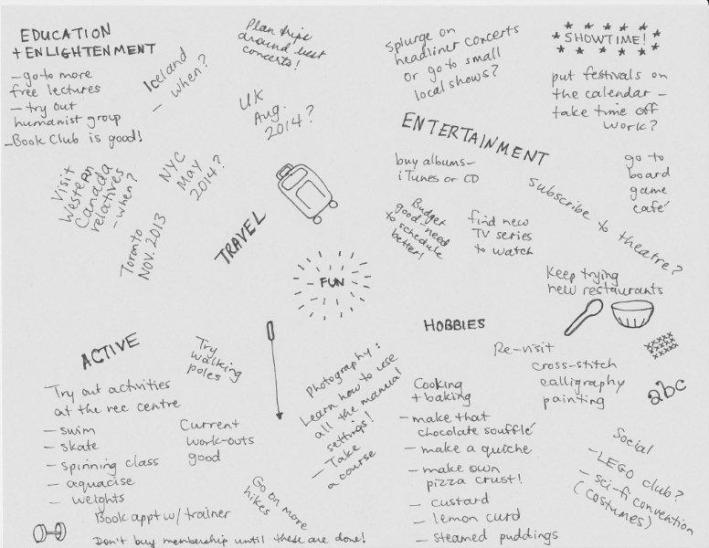 EDUCATION
+ ENLIGHTENMENT
- go to more
free lectures
- try out
humanist group
- Book Club is good!
Iceland
- when?
Plan trips
around best
concerts!
UK
Aug.
2014?
Visit
Western
Canada
relatives
- when?
NYC
May
2014?
Toronto
Nov. 2013
TRAVEL
Splurge on
headliner concerts
or go to small
local shows?
SHOWTIME!
put festivals on
the calendar -
take time off
work?
ENTERTAINMENT
buy albums -
iTunes or CD
Budget
good, need
to schedule
better!
find new
TV series
to watch
Subscribe to theatre?
go to
board
game
café
Keep trying
new restaurants
FUN
ACTIVE
Try
walking
poles
Try out activities
at the rec centre
- swim
- skate
- spinning class
- aquacise
- weights
Current
work-outs
good
Book appt w/ trainer
Don't buy membership until these are done!
Go on more
hikes
Photography:
Learn how to use
all the manual
settings!
- Take
a course
HOBBIES
Cooking
+ baking
- make that
chocolate soufflé
- make a quiche
- make own
pizza crust!
- custard
- lemon curd
- steamed puddings
Re-visit
cross-stitch
calligraphy
painting
abc
Social
- LEGO club?
- sci-fi convention
(costumes)